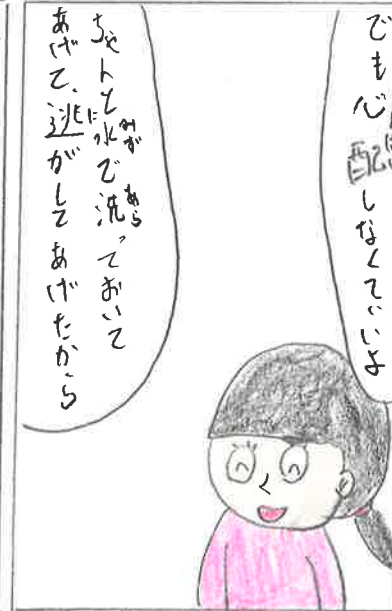 でも心配しなくていいよ
ちゃんと水で洗っておいて
あげて、逃がしてあげたから